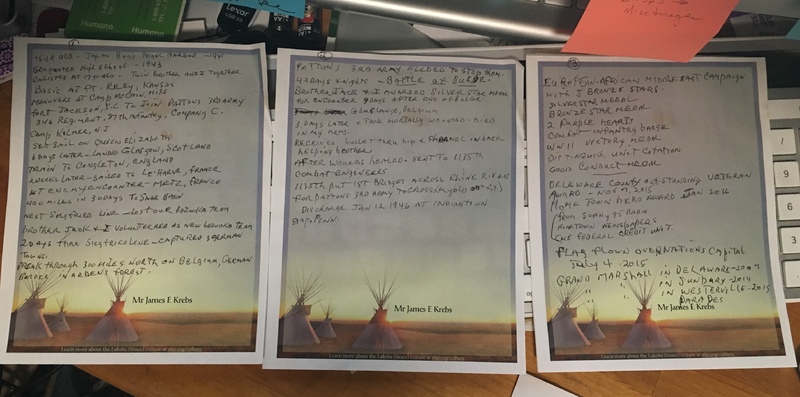 Humana
Humana
Lexar
USB 2.0
1
15 YR OLD - Japan Bombs Pearl Harbor - 1941
Graduated High School - 1943
Enlisted at 17 yr old - Twin brother and I together
Basic at Ft. Reley, Kansas
Manuvers at Camp McCain, Miss
Fort Jackson, S.C to Join Pattons 3rd Army
346 Regiment, 87th Infantry, Company C.
Camp Kilmer, N.J
Set Sail on Queen Elizabeth
5 Days Later - Landed Glasgow, Scotland
Train to Congleton, England
2 weeks later - Sailed to Le Harve, France
1st Enemy encounter - Metz, France
400 miles in 30 days to Saar Basin
Next Siegfried Line - Lost our Bazooka Team
Brother Jack & I volunteered as new bazooka team
2 days thru Siegfried Line - Captured 3 German
Towns.
Break through 300 miles north on Belgium, German
Border in Ardens Forest.
Mr James E Krebs
Learn more about the Lakota (Sioux) culture at
Pattons 3rd Army needed to stop them.
42 days Knights - Battle of Bulge.
Brother Jack & I awarded Silver Star Medal
for encounter 9 days after one of Bulge
Belgium
3 days later - Jack mortally wounded - Died
in my arms.
Received bullet thru hip & shrapnel in back
helping brother.
After wounds healed. Sent to 1135th
Combat Engineers
1135th put 1st Bridges across Rhine River
for Pattons 3rd Army to cross
Discharge Jan 12 1946 at Indiantown
Gap, Penn.
Mr James E Krebs
Learn more about the Lakota (Sioux) culture at
European-African Middle East Campaign
with 3 Bronze Stars.
Silver Star Medal
Bronze Star Medal
2 Purple Hearts
Combat Infantry Badge
WW II Victory Medal
Distinquise Unit Cotation
Good Conduct Medal
Deleware County Outstanding Veteran
Award - Nov 7, 2015
Home Town Hero Award Jan 2016
from Sunny 95 Radio
Newspapers
CME Federal Credit Unit.
Flag flown over Nations Capital
July 4 - 2015
Grand Marshall in Delaware - 2009
" " in Sunbary - 2014
" " in Westerville - 2015
Parades
Mr James E Krebs
Learn more about the Lakota (Sioux) culture at